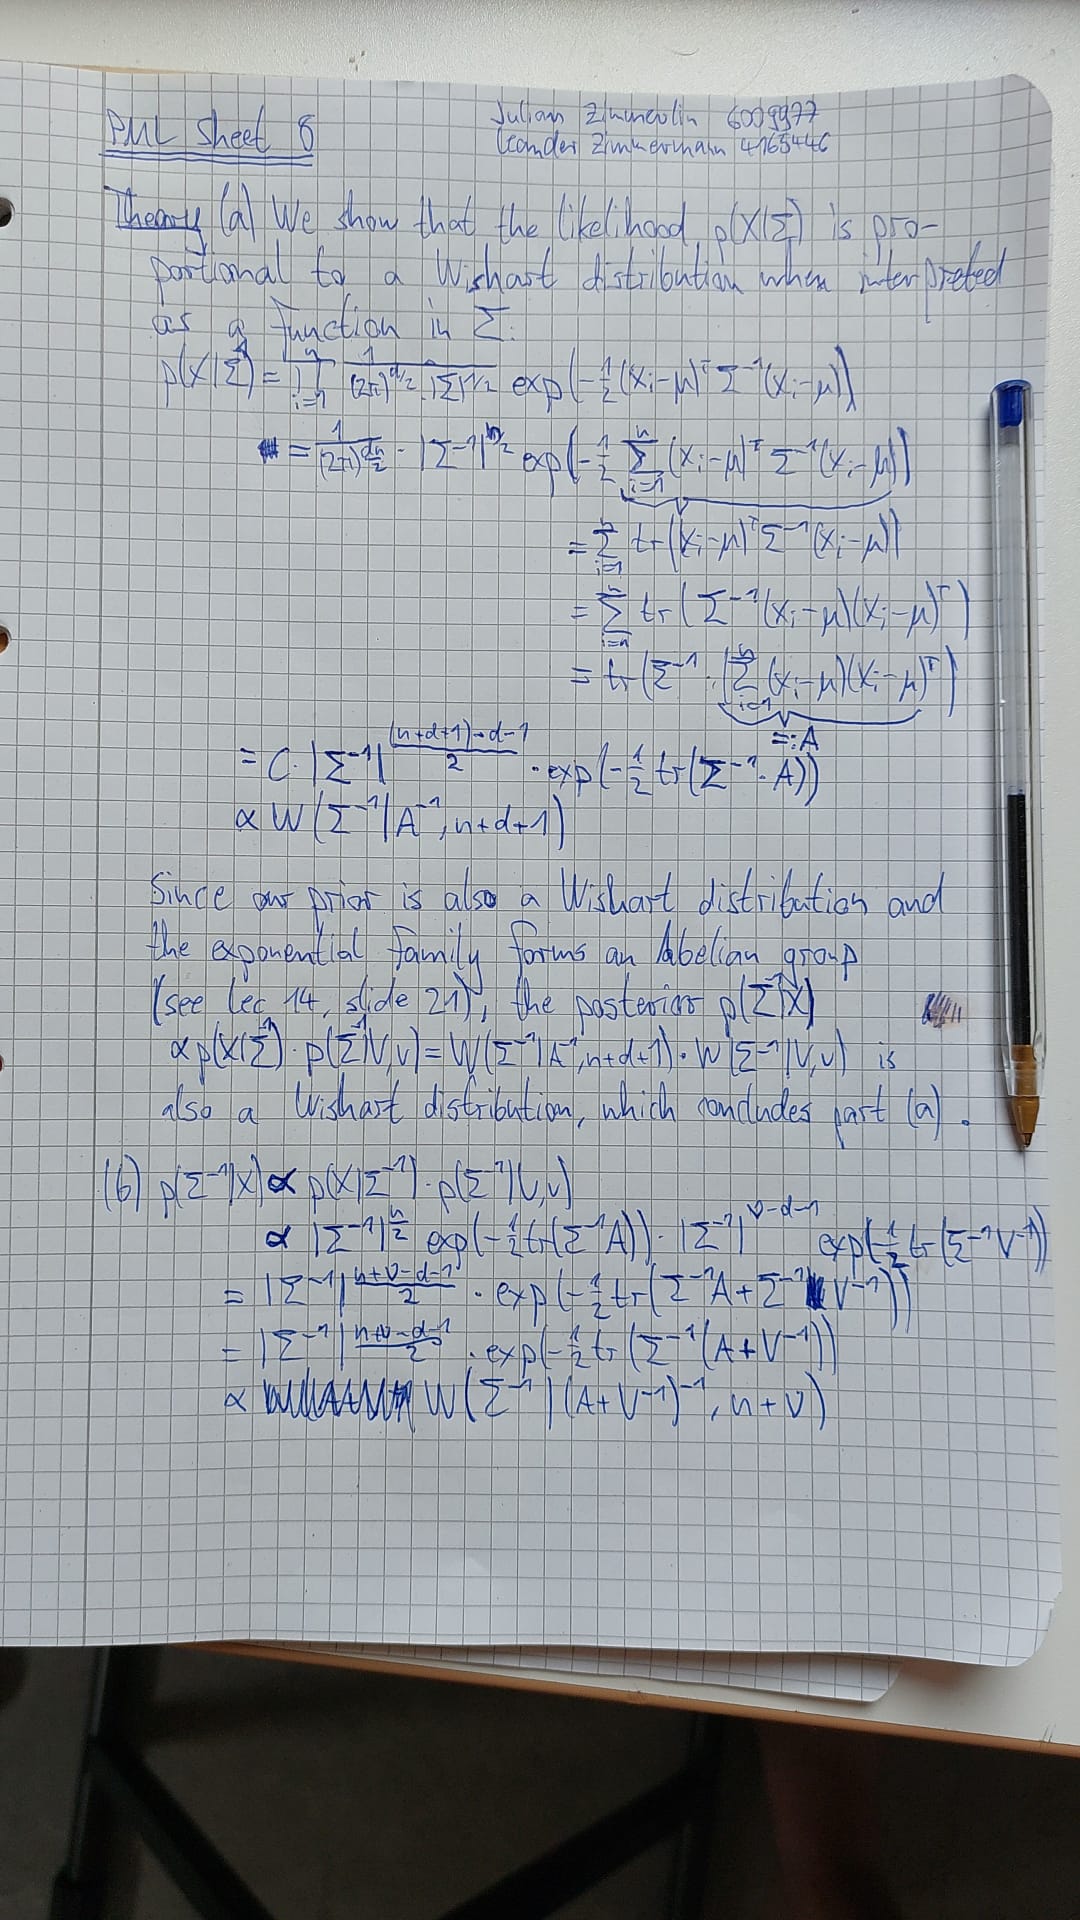 PML Sheet 8
Julian Zimmerlin 6009977
Leander Zimmermann 4165446
Theory (a) We show that the likelihood p(X|Σ) is pro-
portional to a Wishart distribution when interpreted
as a function in Σ.
p(X|Σ⁻¹) = ∏_{i=1}^{n} 1/((2π)^{d/2} · |Σ|^{1/2}) exp(-½(xᵢ-μ)ᵀ Σ⁻¹(xᵢ-μ))
= 1/(2π)^{dn/2} · |Σ⁻¹|^{n/2} exp(-½ ∑_{i=1}^{n} (xᵢ-μ)ᵀ Σ⁻¹(xᵢ-μ))
= ∑_{i=1}^{n} tr((xᵢ-μ)ᵀ Σ⁻¹(xᵢ-μ))
= ∑_{i=1}^{n} tr(Σ⁻¹(xᵢ-μ)(xᵢ-μ)ᵀ)
= tr(Σ⁻¹ · (∑_{i=1}^{n} (xᵢ-μ)(xᵢ-μ)ᵀ)
=: A
= C · |Σ⁻¹|^{((n+d+1)-d-1)/2} · exp(-½ tr(Σ⁻¹ · A))
∝ W(Σ⁻¹|A⁻¹, n+d+1)
Since our prior is also a Wishart distribution and
the exponential family forms an abelian group
(see Lec 14, slide 21), the posterior p(Σ⁻¹|X)
∝ p(X|Σ⁻¹) · p(Σ⁻¹|V,ν) = W(Σ⁻¹|A⁻¹, n+d+1) · W(Σ⁻¹|V,ν) is
also a Wishart distribution, which concludes part (a).
(b) p(Σ⁻¹|X) ∝ p(X|Σ⁻¹) · p(Σ⁻¹|V,ν)
∝ |Σ⁻¹|^{n/2} exp(-½tr(Σ⁻¹A)) · |Σ⁻¹|^{ν-d-1} exp(-½ tr(Σ⁻¹V⁻¹))
= |Σ⁻¹|^{(n+ν-d-1)/2} · exp(-½ tr(Σ⁻¹A + Σ⁻¹V⁻¹))
= |Σ⁻¹|^{(n+ν-d-1)/2} · exp(-½ tr(Σ⁻¹(A+V⁻¹))
∝ W(Σ⁻¹|(A+V⁻¹)⁻¹, n+ν)